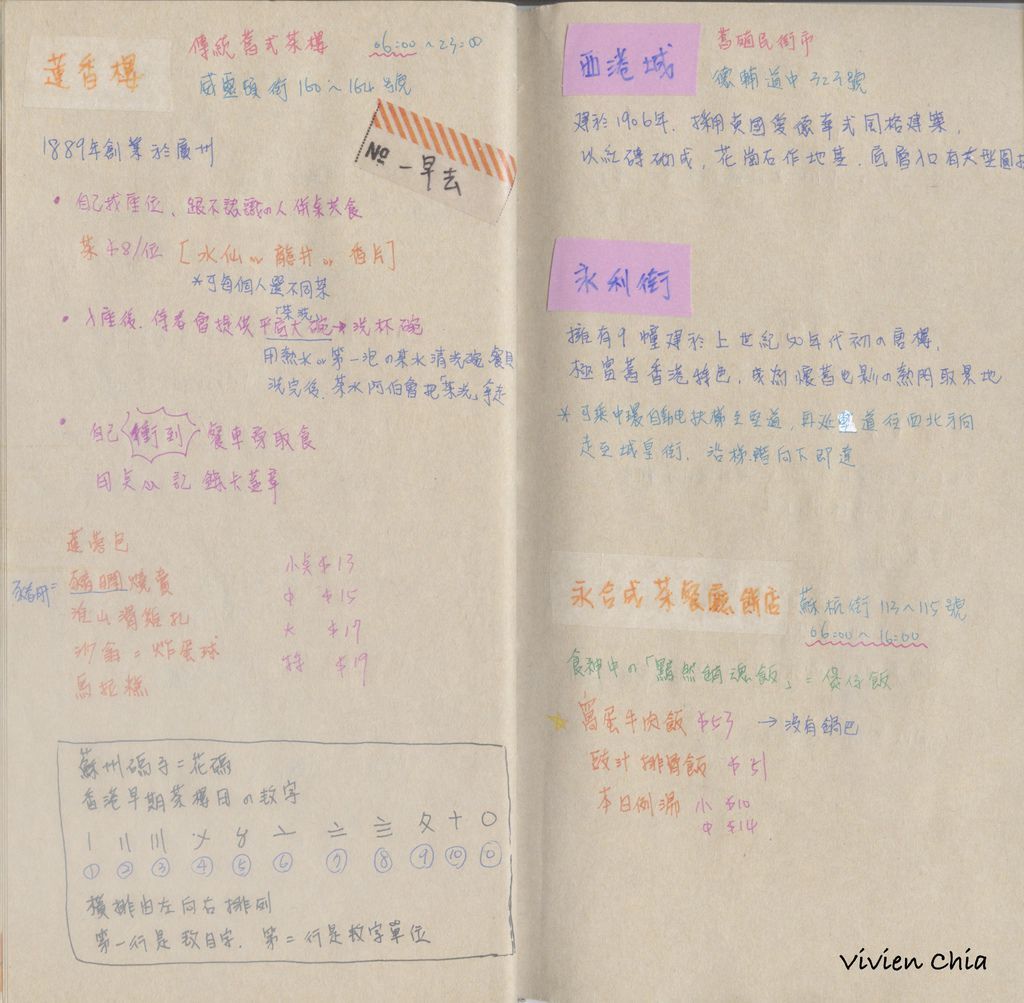 蓮香樓
傳統舊式茶樓 06:00～23:00
威靈頓街160～164號
№ 一早去
1889年創業於廣州
• 自己找座位、跟不認識の人併桌共食
茶$8/位 [水仙 or 龍井 or 香片]
*可每個人選不同茶
「茶洗」
• 入座後,侍者會提供平底大碗→洗杯碗
用熱水or第一泡の茶水清洗碗、餐具
洗完後,茶水阿伯會把「茶洗」拿走
• 自己 衝到 餐車旁取食
用點心記錄卡蓋章
蓮蓉包
豬膶燒賣
豬肝=
淮山滑雞扎
沙翁=炸蛋球
馬拉糕
小點$13
中 $15
大 $17
特 $19
蘇州碼子=花碼
香港早期茶樓用の数字
〡 〢 〣 〤 〥 〦 〧 〨 夂 十 〇
① ② ③ ④ ⑤ ⑥ ⑦ ⑧ ⑨ ⑩ ⓪
橫排由左向右排列
第一行是数目字,第二行是数字單位
西港城
舊碼民街市
德輔道中323號
建於1906年,採用英國愛德華式風格建築,
以紅磚砌成,花崗石作地基,底層入口有大型圓拱
永利街
擁有9幢建於上世紀50年代初の唐樓,
極富舊香港特色,成為懷舊电影の熱門取景地
*可乘中環自動电扶梯至堅道,再延堅道往西北方向
走至城皇街,沿梯階向下即達
永合成茶餐廳餅店
蘇杭街113～115號
06:00～16:00
食神中の「黯然銷魂飯」=煲仔飯
☆ 窩蛋牛肉飯 $53 →沒有鍋巴
豉汁排骨飯 $51
本日例湯 小 $10
中 $14
Vivien Chia